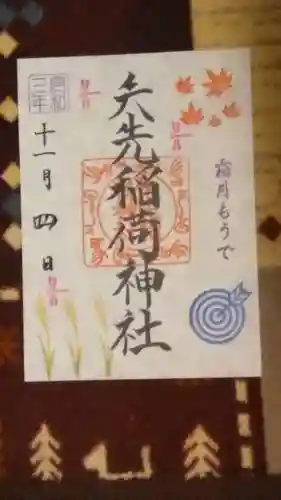 矢先稲荷神社
霜月もうで
令和
三年
十一月四日